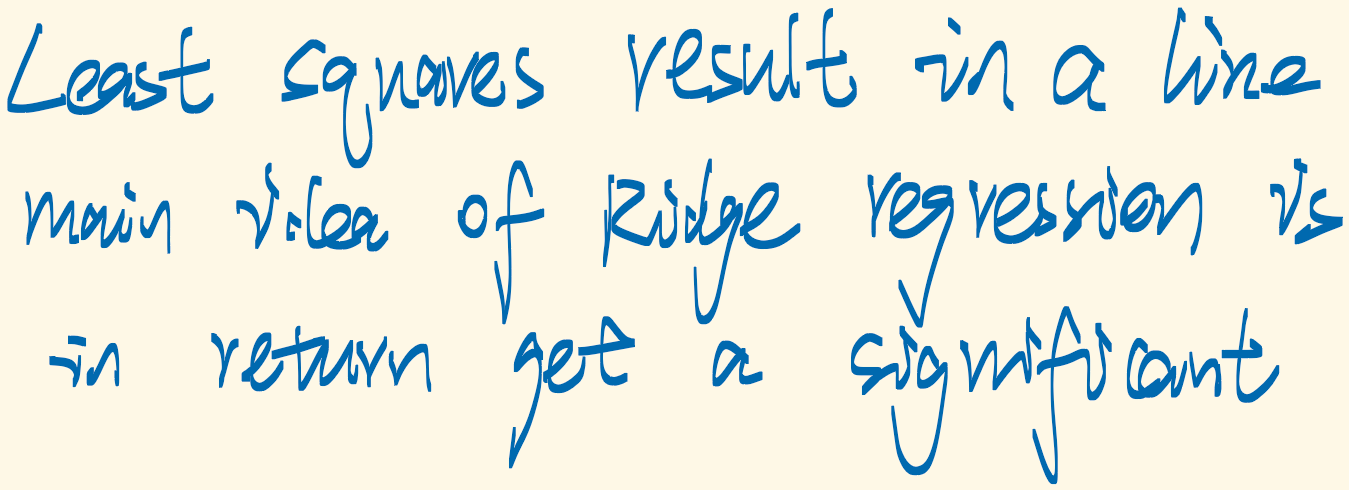 Least squares result in a line
main idea of Ridge regression is
in return get a significant